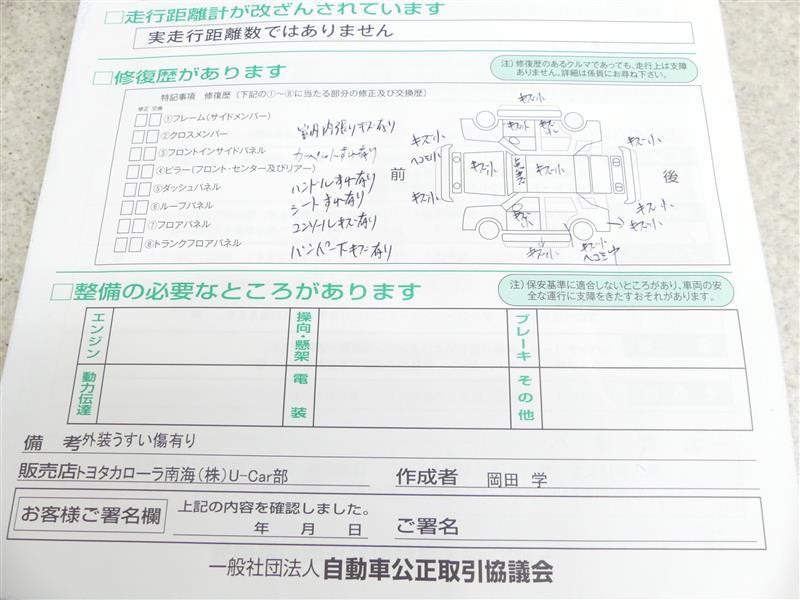 □走行距離計が改ざんされています
実走行距離数ではありません
□修復歴があります
注）修復歴のあるクルマであっても、走行上は支障
ありません。詳細は係員にお尋ね下さい。
特記事項 修復歴（下記の①〜⑧に当たる部分の修正及び交換歴）
修正 交換
□□①フレーム（サイドメンバー）
□□②クロスメンバー
□□③フロントインサイドパネル
□□④ピラー（フロント・センター及びリアー）
□□⑤ダッシュパネル
□□⑥ルーフパネル
□□⑦フロアパネル
□□⑧トランクフロアパネル
室内内張りキズ有り
カーペットすれ有り
ハンドルすれ有り
シートすれ有り
コンソールキズ有り
バンパードキズ有り
前
後
キズ小
キズ小
キズ小
キズ小
ヘコミ小
キズ小
キズ小
キズ小
キズ小
キズ小
キズ小
キズ小
キズ小
ヘコミ中
□整備の必要なところがあります
注）保安基準に適合しないところがあり、車両の安
全な運行に支障をきたすおそれがあります。
エンジン
操向・懸架
ブレーキ
動力伝達
電装
その他
備 考 外装うすい傷有り
販売店 トヨタカローラ南海（株）U-Car部 作成者 岡田 学
お客様ご署名欄
上記の内容を確認しました。
年 月 日 ご署名
一般社団法人 自動車公正取引協議会